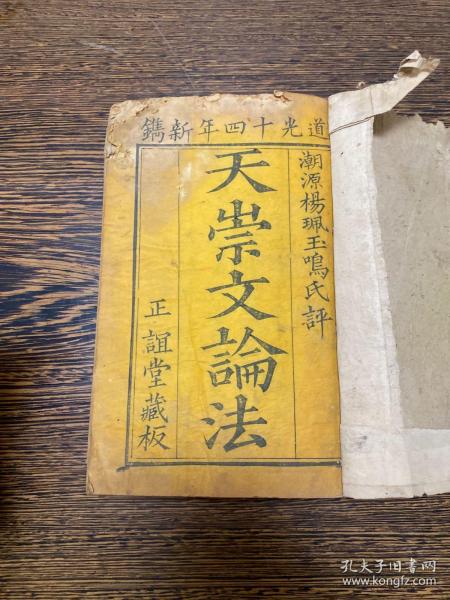 道光十四年新鐫
潮源楊珮玉鳴氏評
天崇文論法
正誼堂藏板
孔夫子旧书网
www.kongfz.com